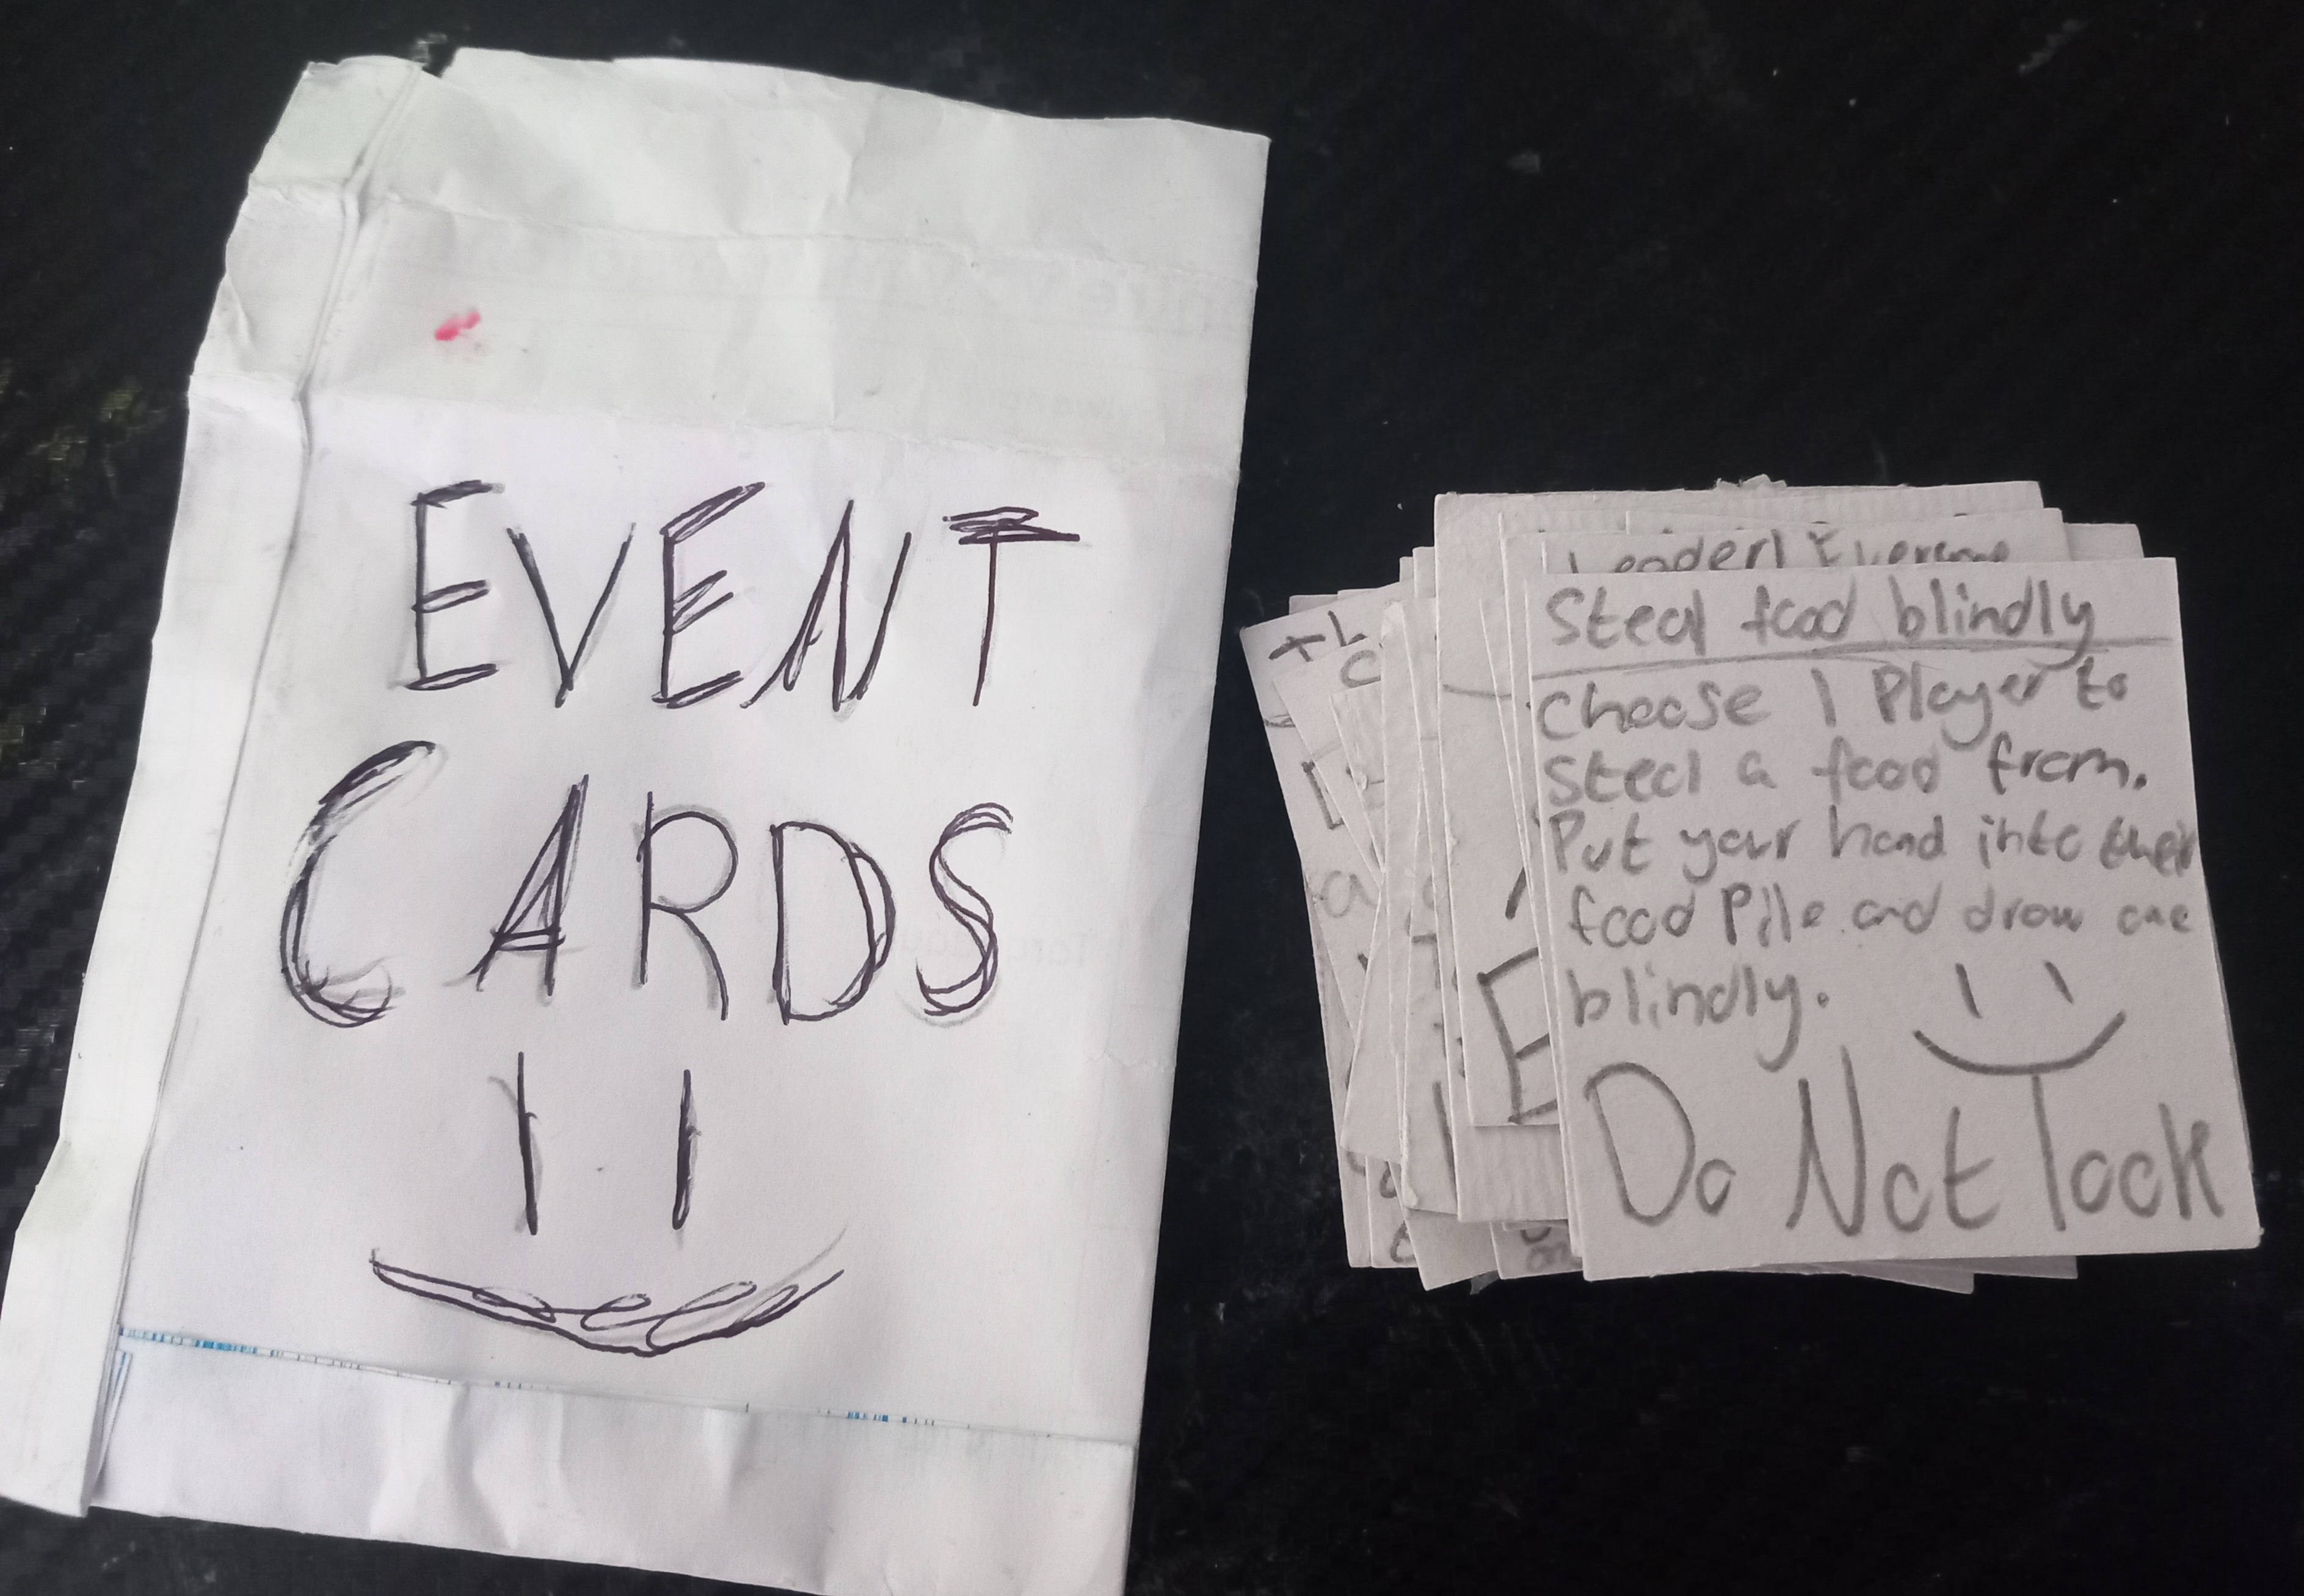 EVENT
CARDS
Steal food blindly
Choose 1 Player to
Steal a food from.
Put your hand into their
food Pile and draw one
blindly.
Do Not Look